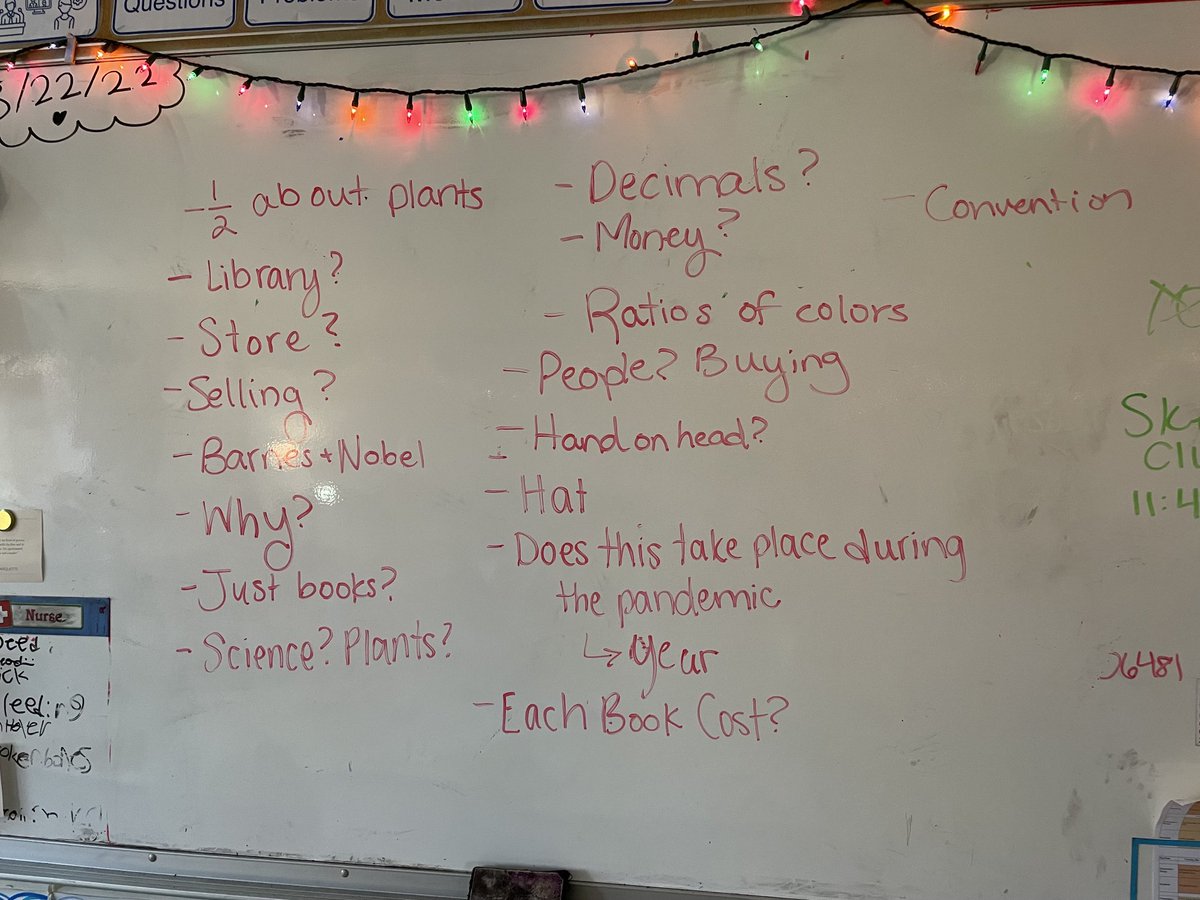 Questions
/22/22
- 1/2 about plants
- Library?
- Store?
- Selling?
- Barnes + Nobel
- Why?
- Just books?
- Science? Plants?
- Decimals?
- Money?
- Ratios of colors
- People? Buying
- Hand on head?
- Hat
- Does this take place during
the pandemic
↳ year
- Each Book Cost?
- Convention
11:4
06481
Nurse